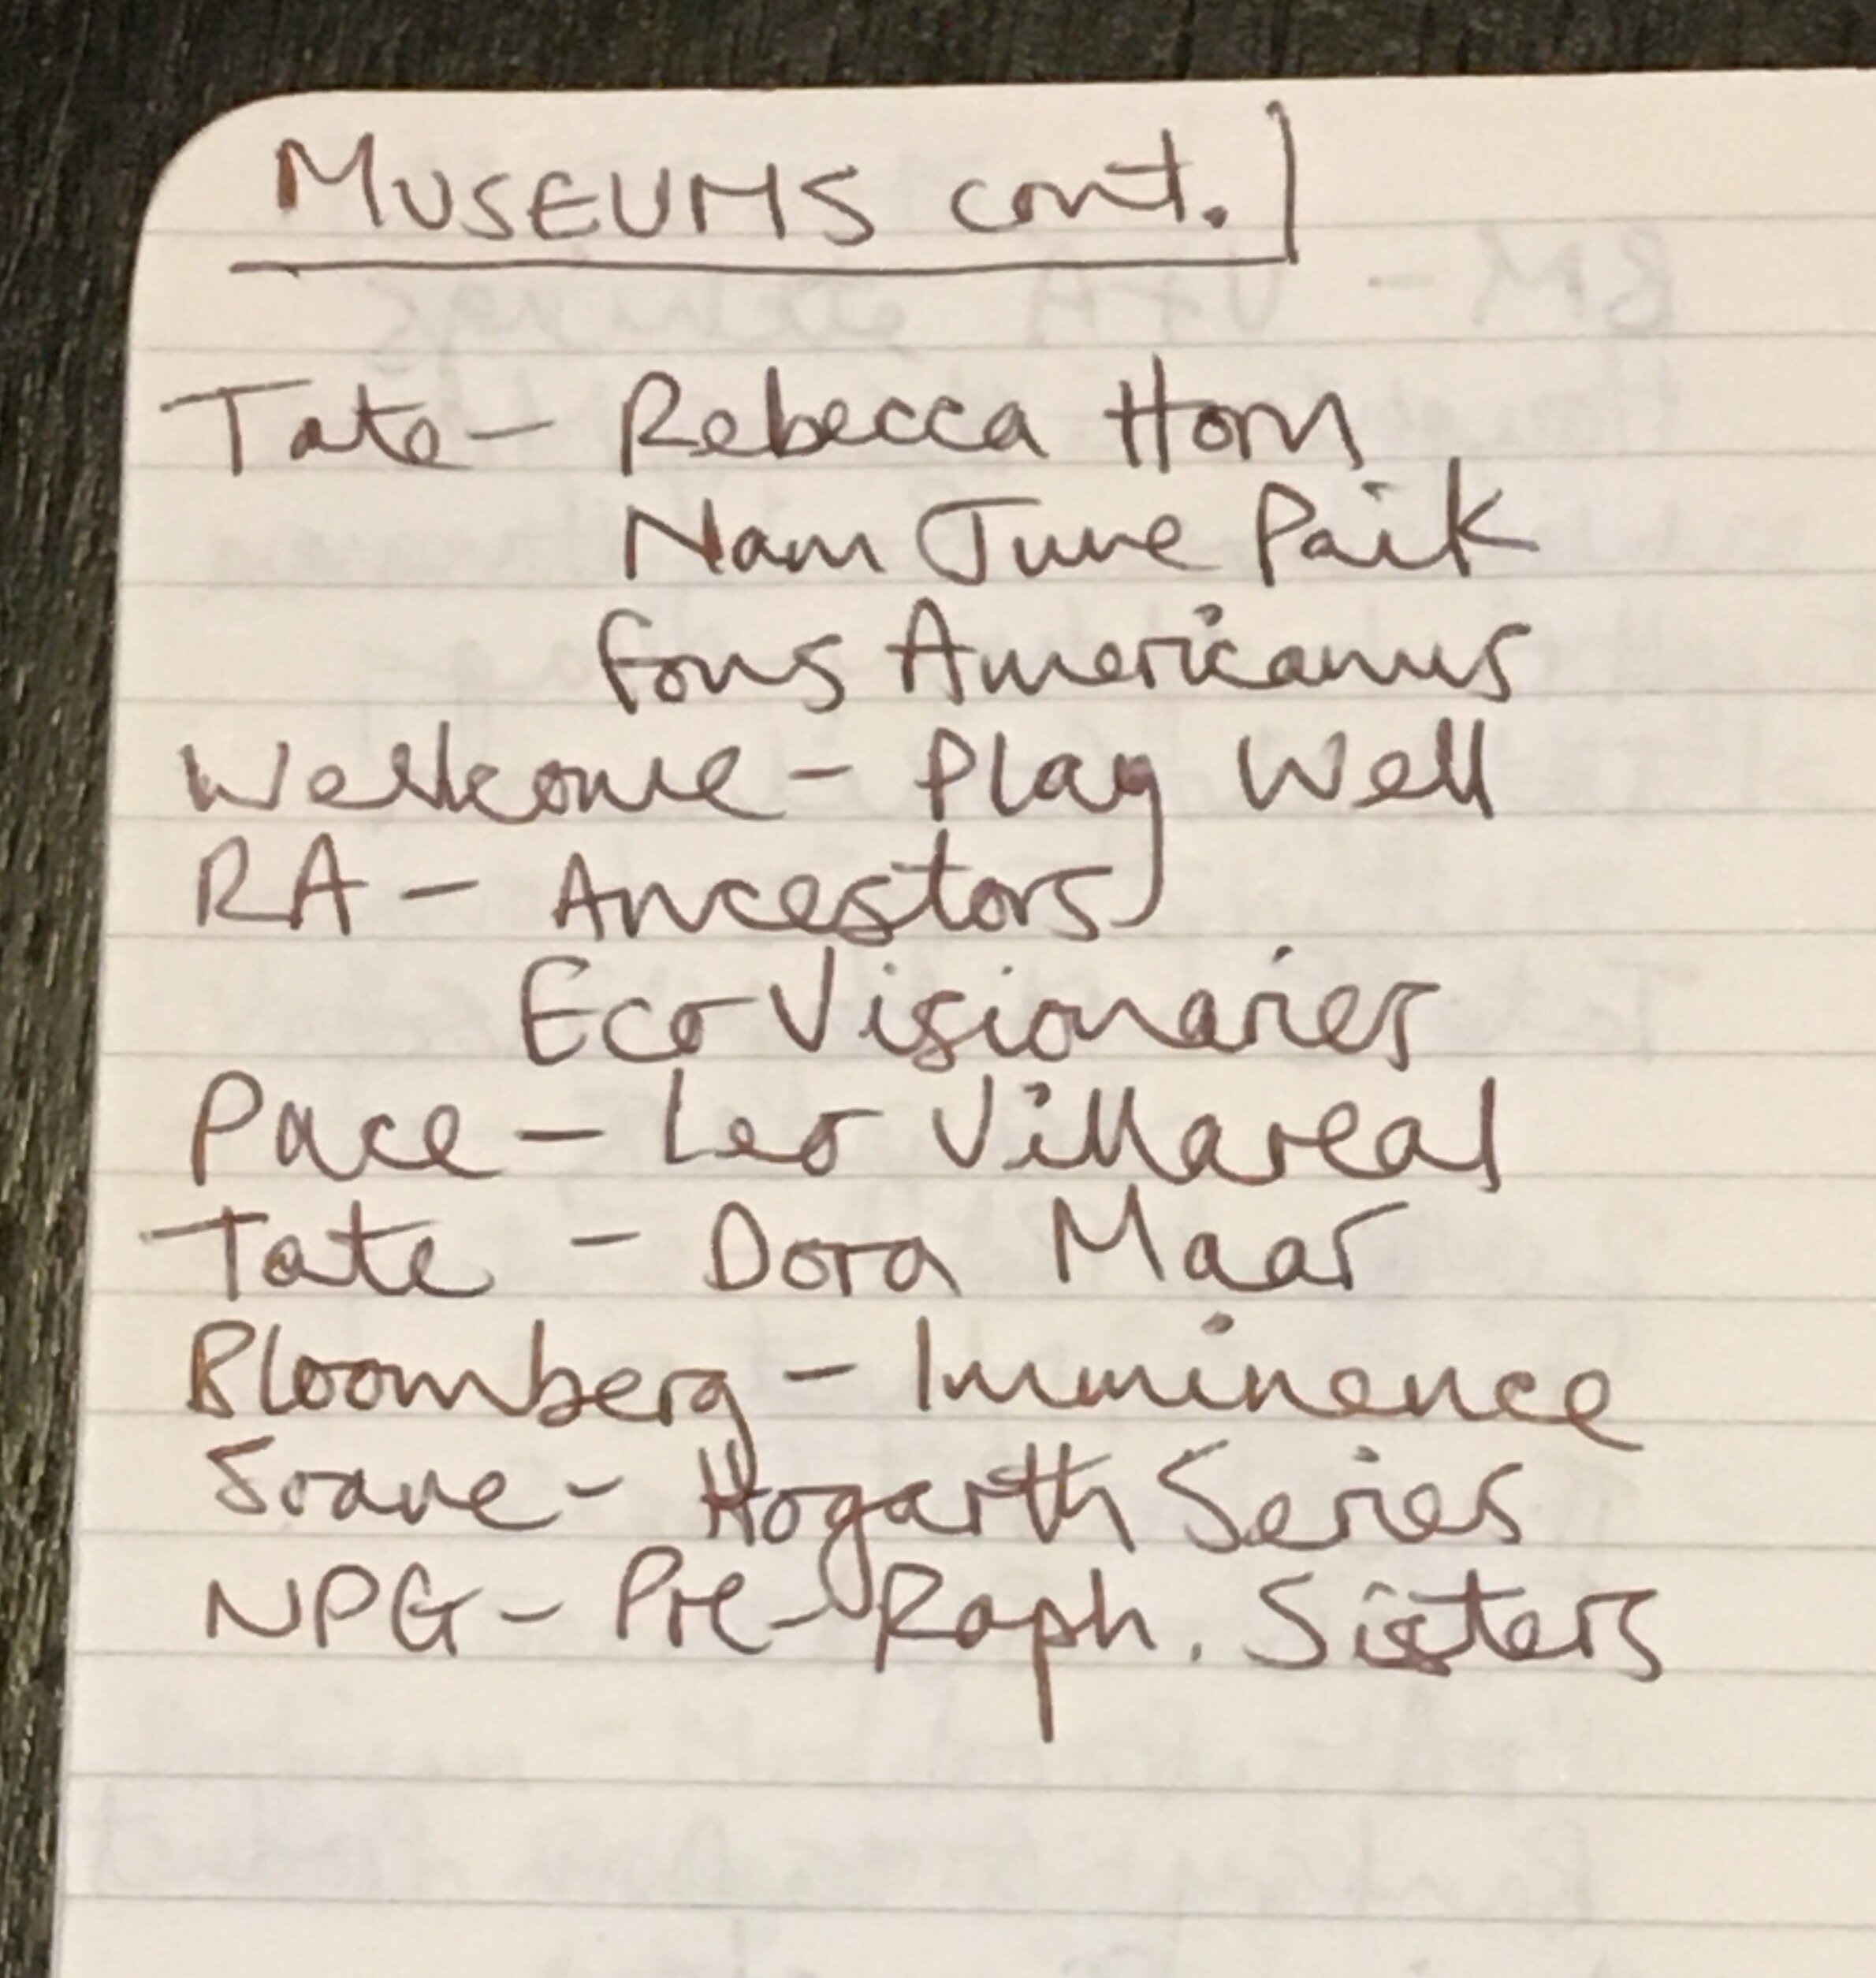 MUSEUMS cont.
Tate - Rebecca Horn
Nam June Paik
Fons Americanus
Wellcome - Play Well
RA - Ancestors
Eco Visionaries
Pace - Leo Villareal
Tate - Dora Maar
Bloomberg - Imminence
Soane - Hogarth Series
NPG - Pre-Raph. Sisters